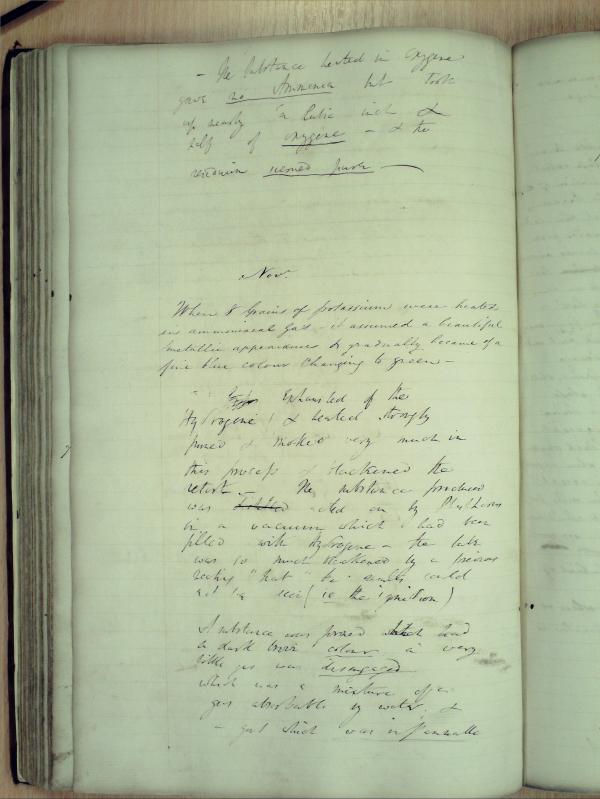 - The substance heated in oxygene
gave no Ammonia but took
up nearly a Cubic inch &
half of oxygene - & the
remainder seemed pure
Nov.
When 8 Grains of potassium were heated
in ammoniacal gas - it assumed a beautiful
metallic appearance & gradually became of a
fine blue colour changing to green -
Exhausted of the
Hydrogene & heated strongly
fumed & smoked very much in
this process & blackened the
retort - The substance produced
was acted on by Phosphorus
in a vacuum which had been
filled with Hydrogene - the tube
was so much blackened by a previous
that the results could
not be seen (ie the ignition)
A substance was formed which had
a dark brown colour a very
little gas was disengaged
which was a mixture of a
gas absorbable by water, &
- gas which was inflammable